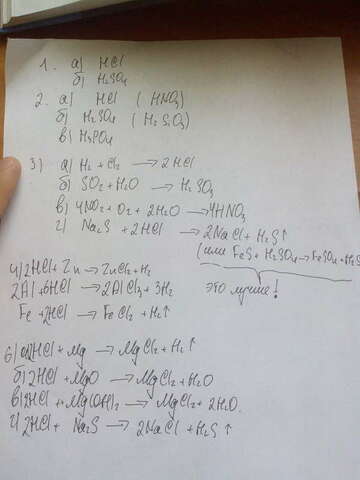 1. а) HCl
б) H2SO4
2. а) HCl (HNO3)
б) H2SO4 (H2SiO3)
в) H3PO4
3) а) H2 + Cl2 → 2HCl
б) SO2 + H2O → H2SO3
в) 4NO2 + O2 + 2H2O → 4HNO3
г) Na2S + 2HCl → 2NaCl + H2S↑
(или FeS + H2SO4 → FeSO4 + H2S
это лучше!
4) 2HCl + Zn → ZnCl2 + H2
2Al + 6HCl → 2AlCl3 + 3H2
Fe + 2HCl → FeCl2 + H2↑
6) а) 2HCl + Mg → MgCl2 + H2↑
б) 2HCl + MgO → MgCl2 + H2O
в) 2HCl + Mg(OH)2 → MgCl2 + 2H2O.
г) 2HCl + Na2S → 2NaCl + H2S↑